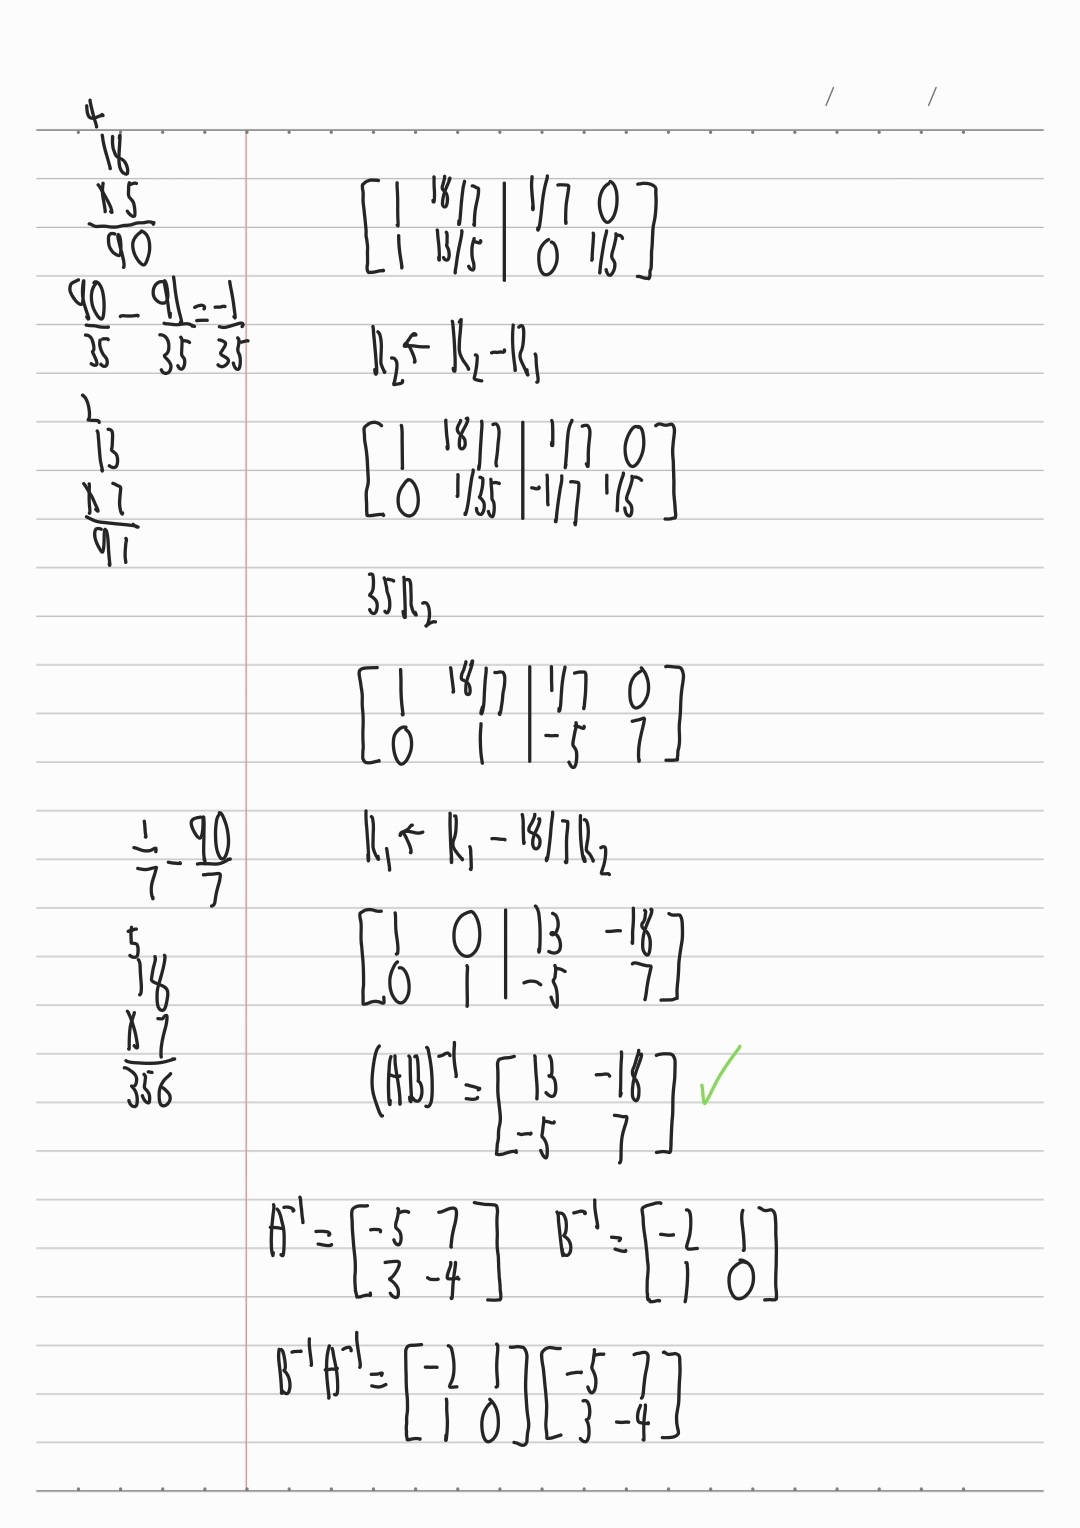 4
18
x 5
90
90/35 - 91/35 = -1/35
2
13
x 7
91
[ 1 18/7 | 1/7 0 ]
[ 1 13/5 | 0 1/5 ]
R₂ ← R₂ - R₁
[ 1 18/7 | 1/7 0 ]
[ 0 1/35 | -1/7 1/5 ]
35R₂
[ 1 18/7 | 1/7 0 ]
[ 0 1 | -5 7 ]
1/7 - 90/7
R₁ ← R₁ - 18/7R₂
5
18
x 7
356
[ 1 0 | 13 -18 ]
[ 0 1 | -5 7 ]
(AB)⁻¹ = [ 13 -18 ] ✓
[ -5 7 ]
A⁻¹ = [ -5 7 ] B⁻¹ = [ -2 1 ]
[ 3 -4 ] [ 1 0 ]
B⁻¹A⁻¹ = [ -2 1 ] [ -5 7 ]
[ 1 0 ] [ 3 -4 ]